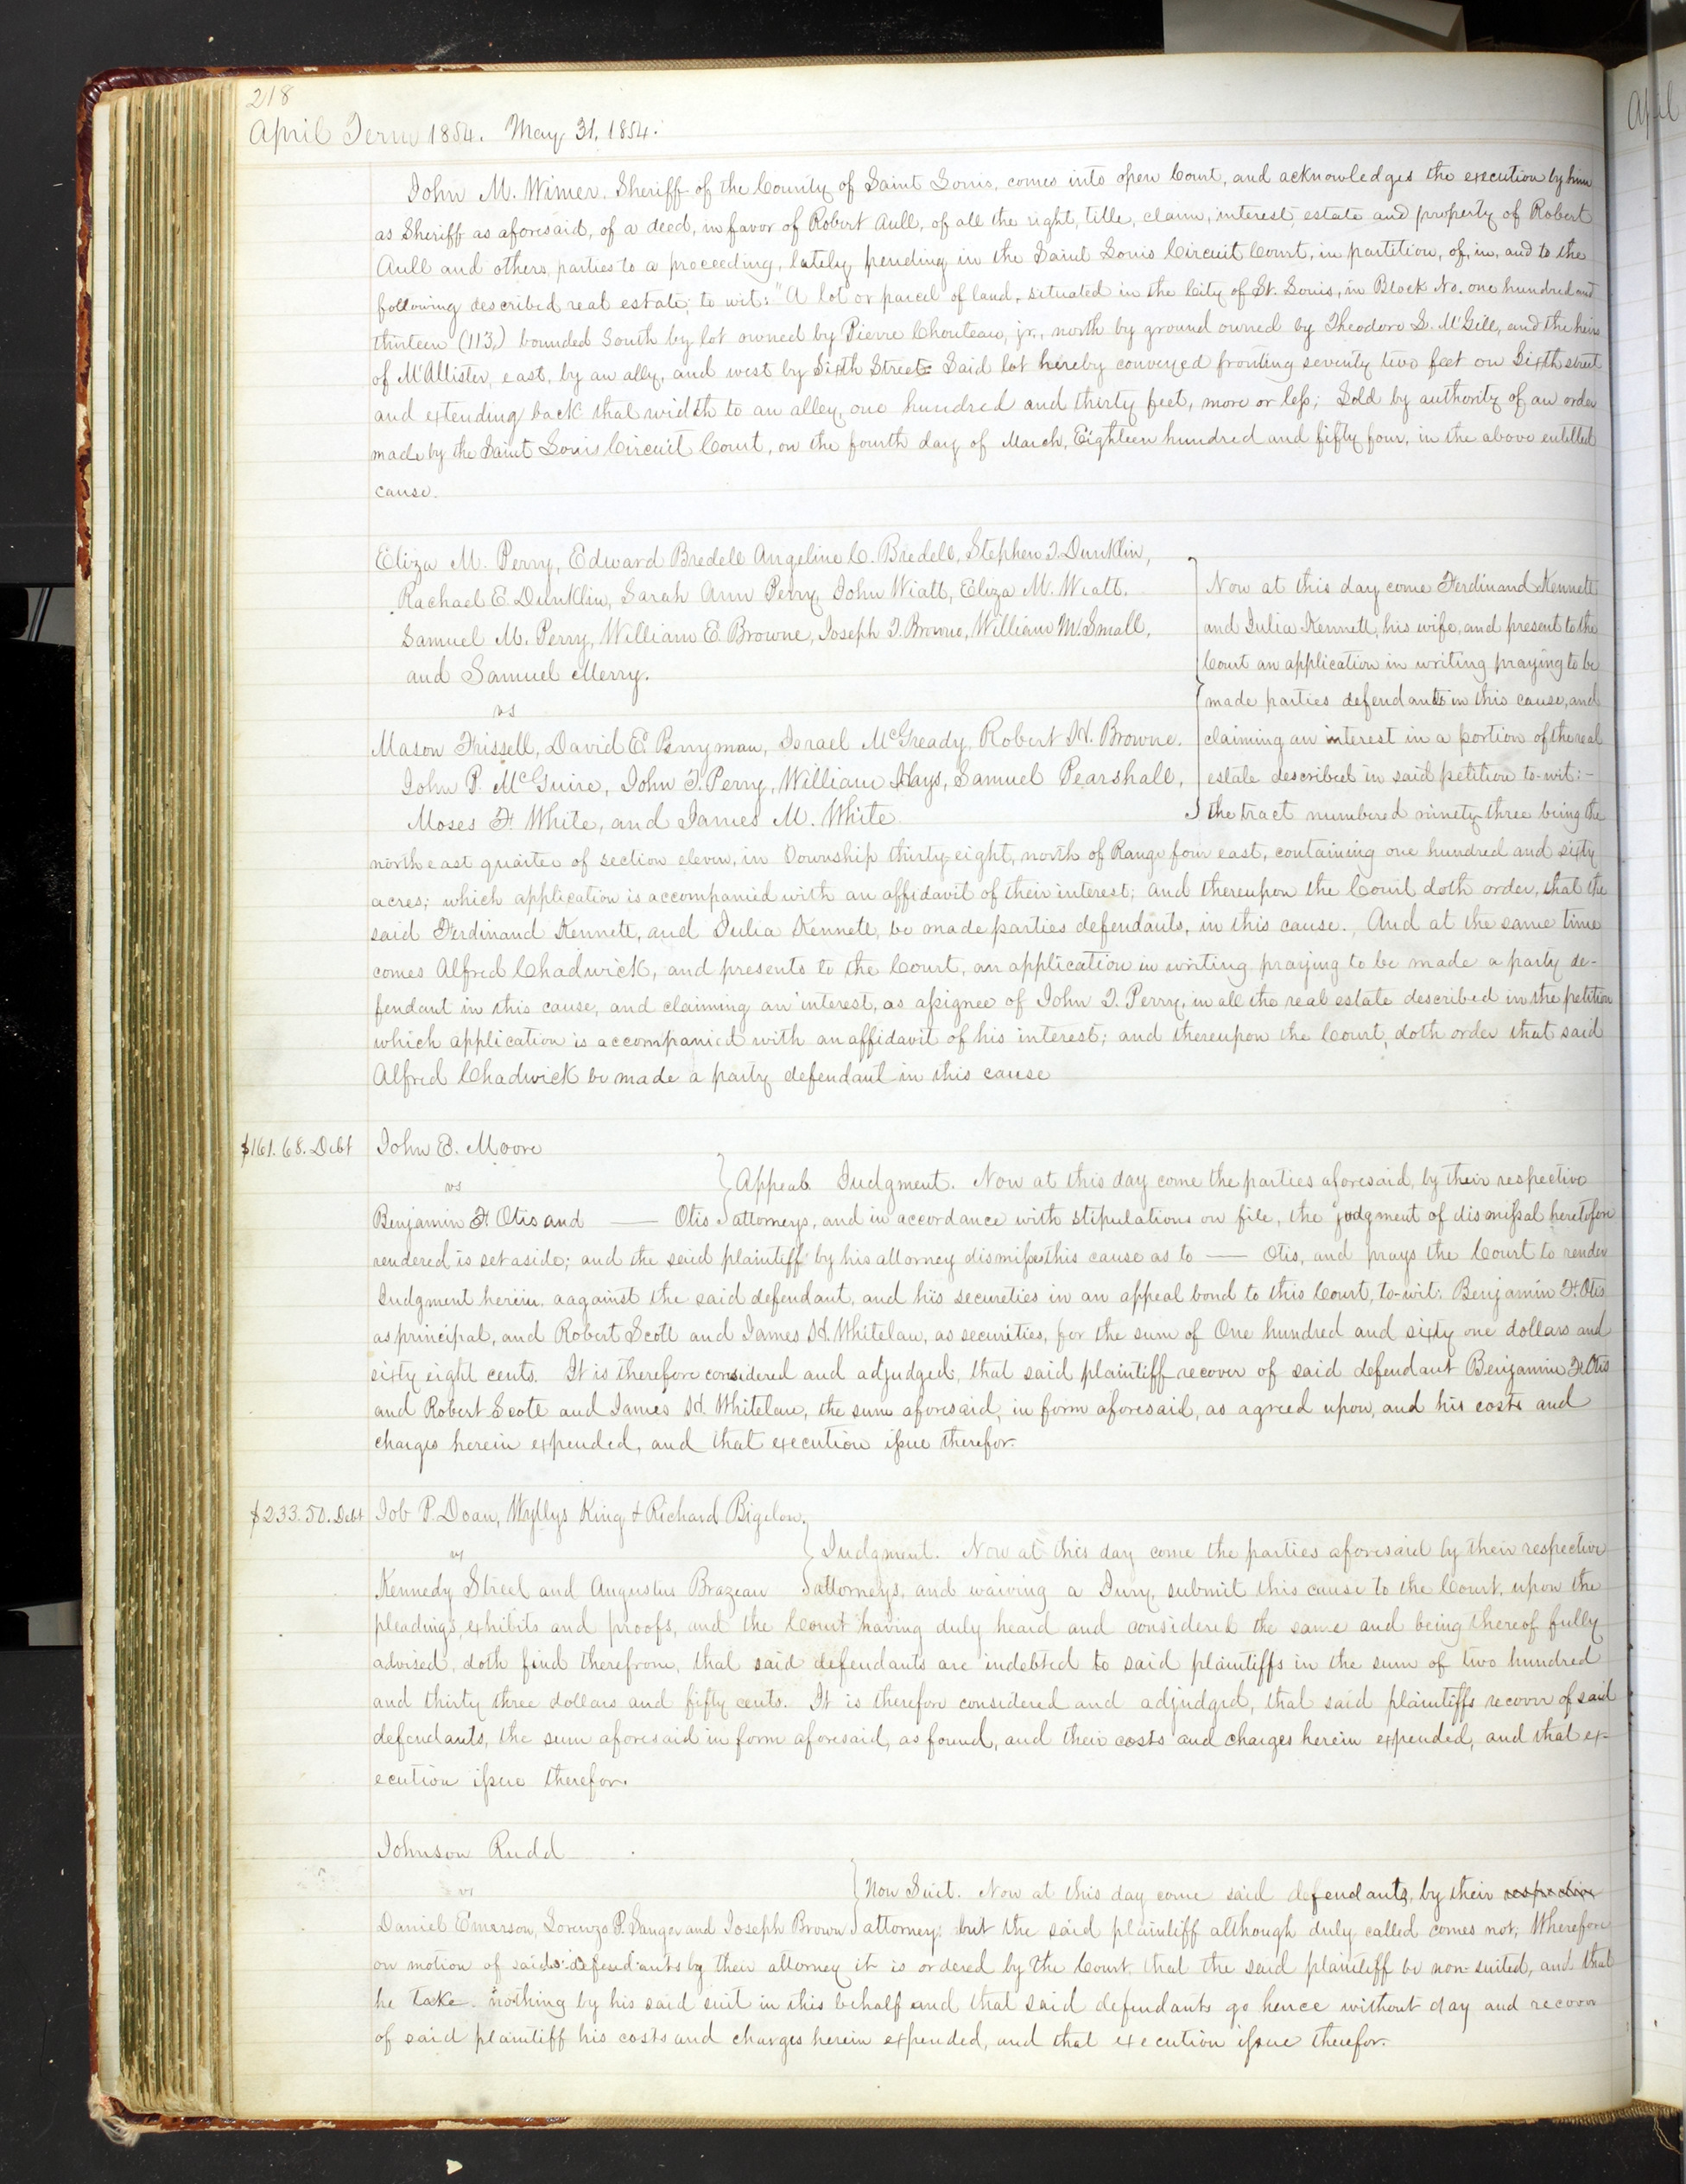 218
April Term 1854. May 31, 1854.
John M. Wimer, Sheriff of the County of Saint Louis, comes into open Court, and acknowledges the execution by him
as Sheriff as aforesaid, of a deed, in favor of Robert Aull, of all the right, title, claim, interest, estate and property of Robert
Aull and others, parties to a proceeding, lately pending in the Saint Louis Circuit Court, in partition, of, in, and to the
following described real estate; to wit: "A lot or parcel of land, situated in the City of St. Louis, in Block No. one hundred and
thirteen (113,) bounded South by lot owned by Pierre Chouteau, jr., north by ground owned by Theodore L. McGill, and the heirs
of McAllister, east, by an ally, and west by Sixth Street: Said lot hereby conveyed fronting seventy two feet on Sixth street
and extending back that width to an alley, one hundred and thirty feet, more or less; Sold by authority of an order
made by the Saint Louis Circuit Court, on the fourth day of March, Eighteen hundred and fifty four, in the above entitled
cause.
Eliza M. Perry, Edward Bredell Angeline C. Bredell, Stephen T. Dunklin,
Rachael E. Dunklin, Sarah Ann Perry, John Wiatt, Eliza M. Wiatt.
Samuel M. Perry, William E. Browne, Joseph T. Browne, William M. Small,
and Samuel Merry.
vs
Mason Frissell, David E. Perryman, Israel McGready, Robert H. Browne.
John P. McGuire, John T. Perry, William Hays, Samuel Pearshall,
Moses F. White, and James M. White
Now at this day come Ferdinand Kennett
and Julia Kennett, his wife, and present to the
Court an application in writing praying to be
made parties defendants in this cause, and
claiming an interest in a portion of the real
estate described in said petition to-wit:-
the tract numbered ninety-three being the
north east quarter of section eleven, in Township thirty-eight, north of Range four east, containing one hundred and sixty
acres; which application is accompanied with an affidavit of their interest; and thereupon the Court doth order, that the
said Ferdinand Kennett, and Julia Kennett, be made parties defendants, in this cause. And at the same time
comes Alfred Chadwick, and presents to the Court, an application in writing praying to be made a party de-
fendant in this cause, and claiming an interest, as assignee of John T. Perry, in all the real estate described in the petition
which application is accompanied with an affidavit of his interest; and thereupon the Court doth order that said
Alfred Chadwick be made a party defendant in this cause
$161.68. Debt John E. Moore
vs
Appeal. Judgment. Now at this day come the parties aforesaid, by their respective
Benjamin F. Otis and —— Otis attorneys, and in accordance with stipulations on file, the judgment of dismissal heretofore
rendered is set aside; and the said plaintiff by his attorney dismisses this cause as to —— Otis, and prays the Court to render
Judgment herein. aagainst the said defendant, and his secureties in an appeal bond to this Court, to-wit: Benjamin F. Otis
as principal, and Robert Scott and James H. Whitelaw, as securities, for the sum of One hundred and sixty one dollars and
sixty eight cents. It is therefore considered and adjudged, that said plaintiff recover of said defendant Benjamin F. Otis
and Robert Scott and James H. Whitelaw, the sum aforesaid, in form aforesaid, as agreed upon, and his costs and
charges herein expended, and that execution issue therefor.
$233.50. Debt Job P. Doan, Wyllys King & Richard Bigelow.
vs
Judgment. Now at this day come the parties aforesaid by their respective
Kennedy Street and Augustus Brazeau attorneys, and waiving a Jury, submit this cause to the Court, upon the
pleadings, exhibits and proofs, and the Court having duly heard and considered the same and being thereof fully
advised, doth find therefrom, that said defendants are indebted to said plaintiffs in the sum of two hundred
and thirty three dollars and fifty cents. It is therefore considered and adjudged, that said plaintiffs recover of said
defendants, the sum aforesaid in form aforesaid, as found, and their costs and charges herein expended, and that ex-
ecution issue therefor.
Johnson Rudd
vs
Non Suit. Now at this day come said defendants, by their respective
Daniel Emerson, Lorenzo P. Sanger and Joseph Brown attorney; but the said plaintiff although duly called comes not; Wherefore
on motion of said defendants by their attorney it is ordered by the Court, that the said plaintiff be non-suited, and that
he take nothing by his said suit in this behalf and that said defendants go hence without day and recover
of said plaintiff his costs and charges herein expended, and that execution issue therefor.